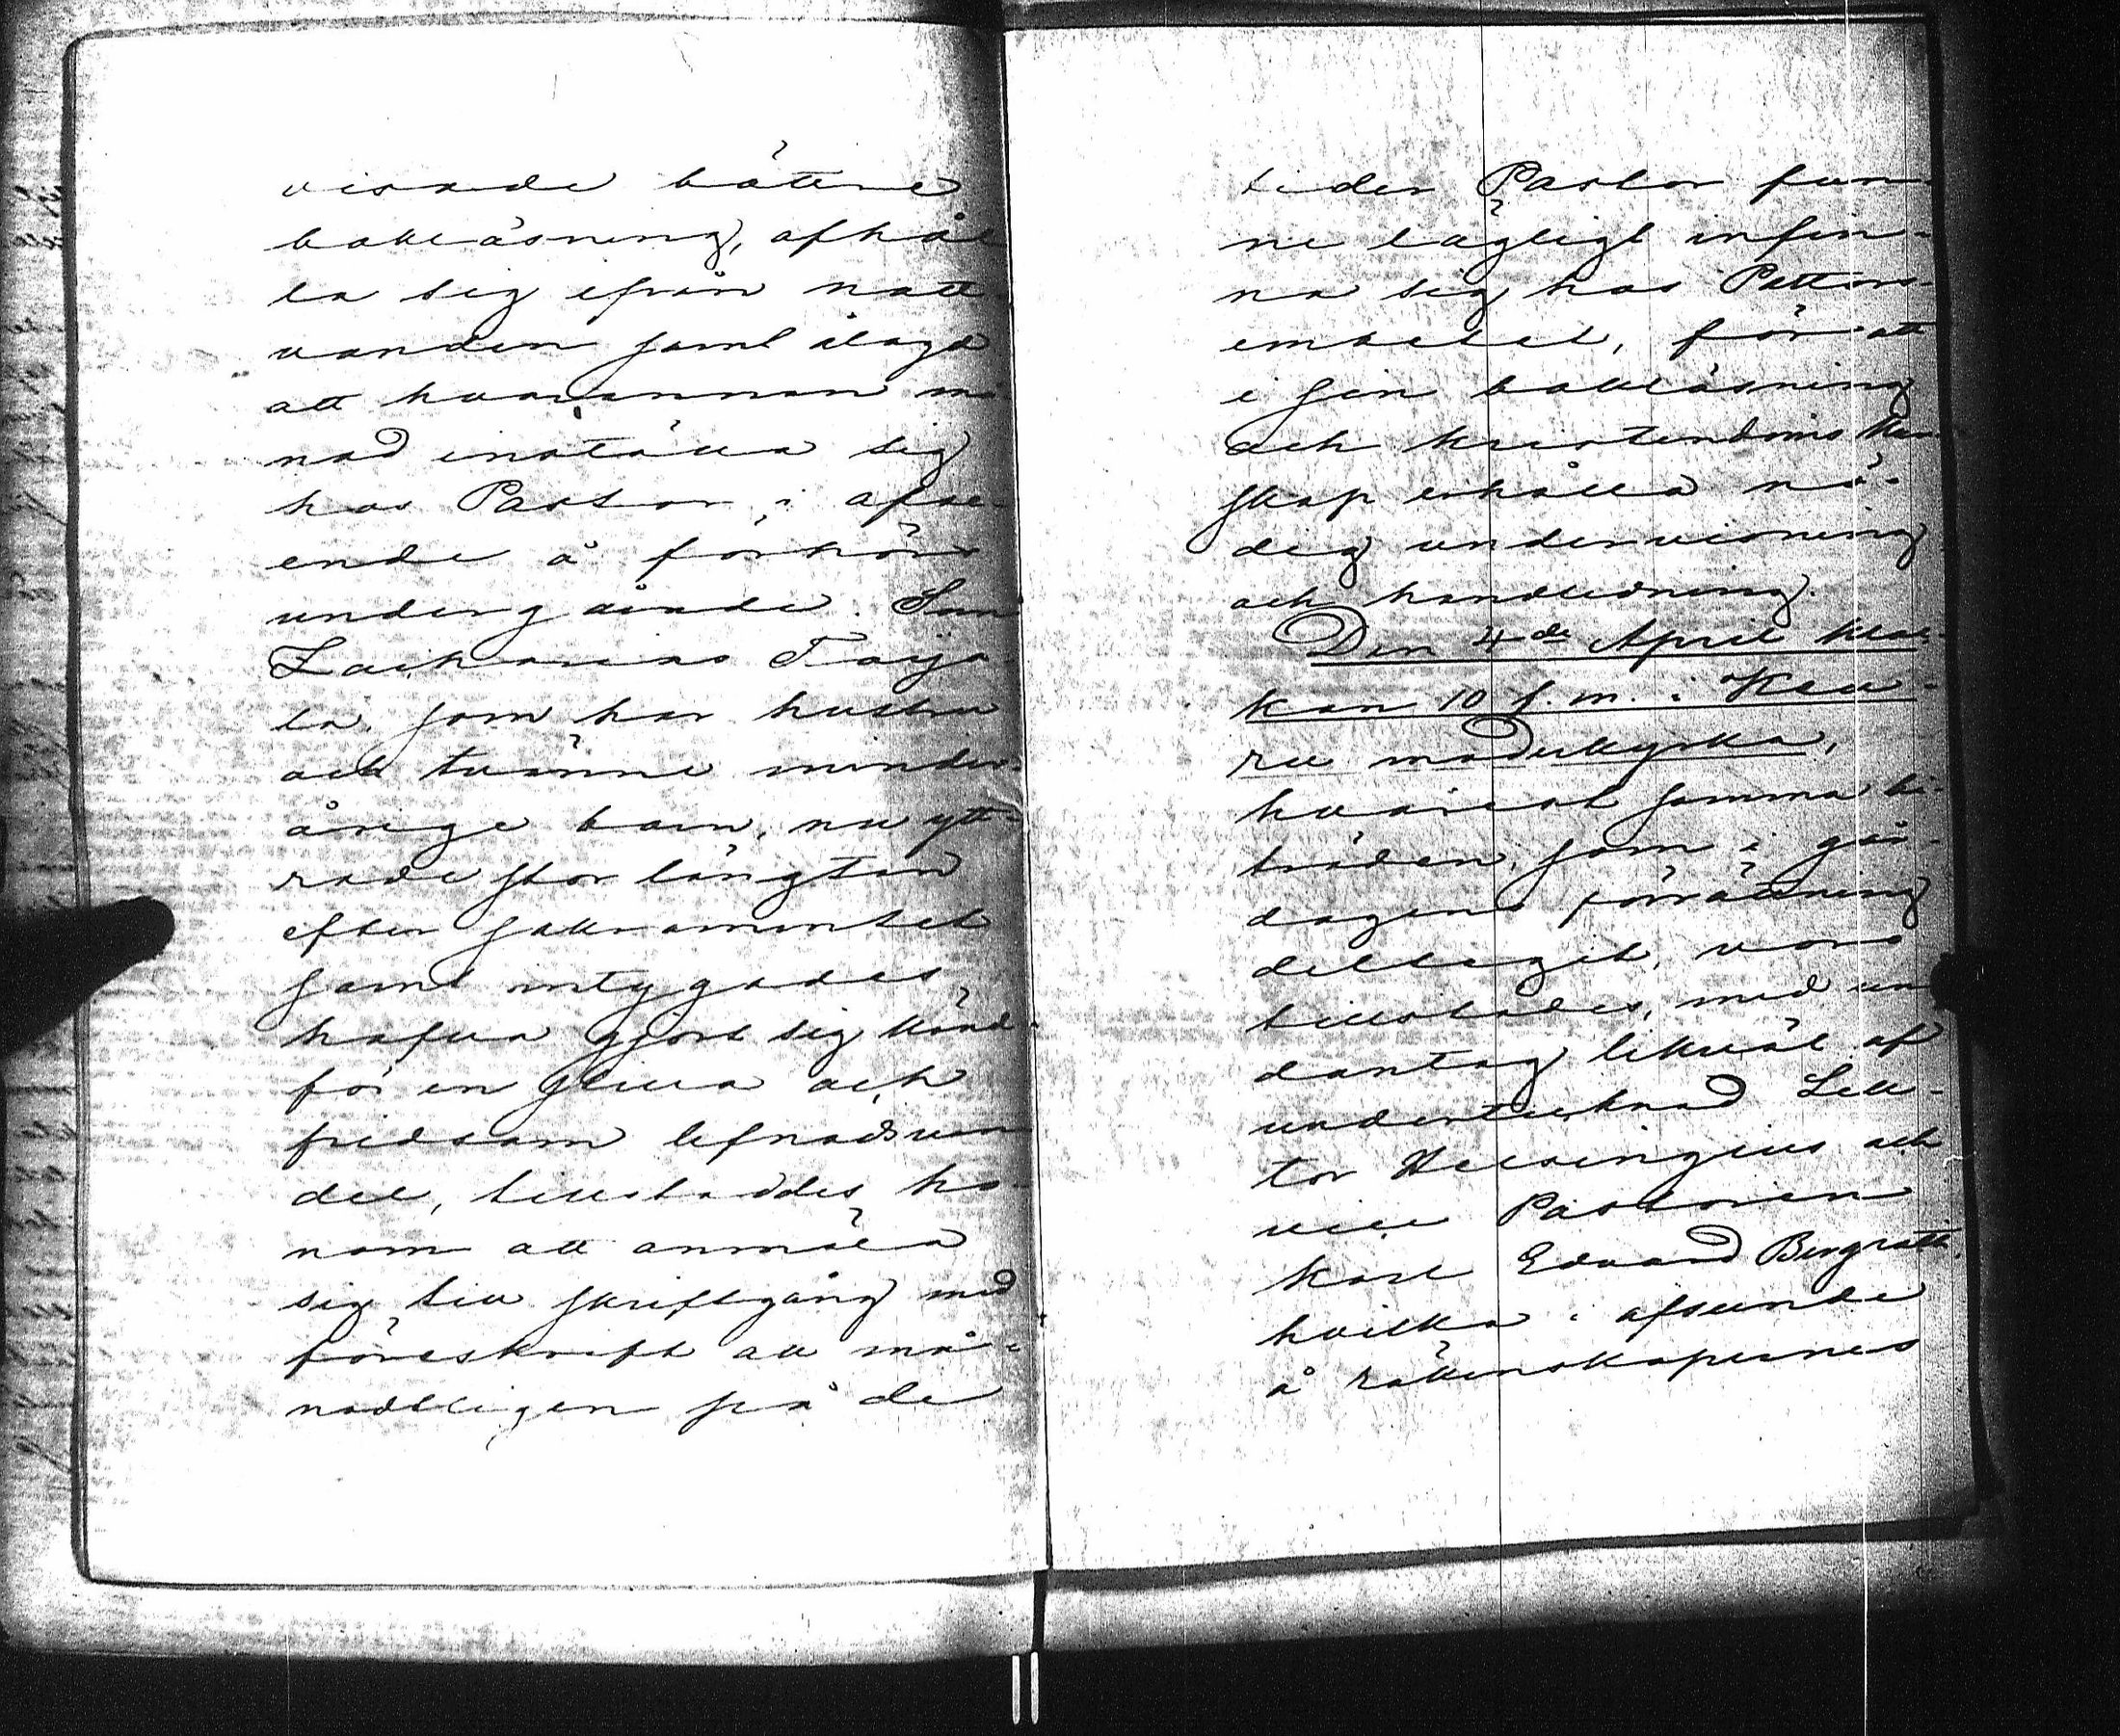 visade bättre
bokläsning, afhål
la sig ifrån natt-
varden samt ålagd
att hvarannan må-
nad inställa sig
hos Pastor i afse-
ende å förhörs
undergående. Som
Zacharias Taija-
la, som har hustru
och tvänne minder-
årige barn, nu ytt-
rade stor längtan
efter sakramentet
samt intygades
hafva gjort sig känd
för en stilla och
fridsam lefnadsvan
del, tillstaddes ho-
nom att anmäla
sig till skriftgång med
föreskrift att må-
nadtligen på de
tider Pastor fun-
ne lägligt infin-
na sig hos Pastors-
embetet, för att
i sin bokläsning
och kristendoms kun-
skap erhålla nö-
dig undervisning
och handledning.
Den 4de April kloc-
kan 10 f.m. i Keu-
ru moderkyrka,
hvarest samma bi-
träden, som i går-
dagens förrättning
deltagit, voro
tillstädes, med un
dantag likväl af
undertecknad Lek-
tor Helsingius och
vice Pastorn
Karl Edvard Bergroth,
hvilka i afseende
å räkenskapernes